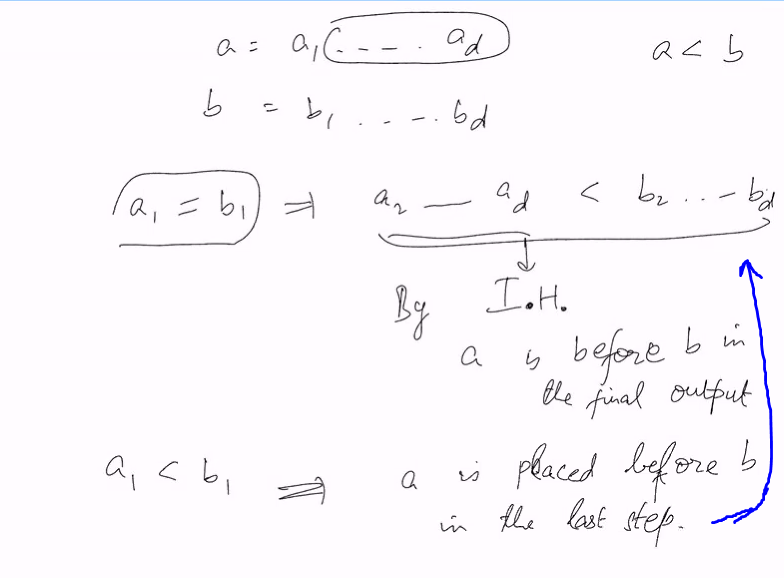 a = a₁ . - - . a_d a < b
b = b₁ . . - . b_d
a₁ = b₁ ⇒ a₂ — a_d < b₂ . . - b_d
By I.H.
a is before b in
the final output
a₁ < b₁ ⇒ a is placed before b
in the last step.